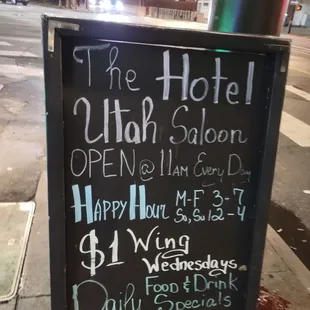 The Hotel
Utah Saloon
OPEN @ 11AM Every Day
HAPPY HOUR M-F 3-7
Sa, Su 12-4
$1 Wing
Wednesdays
Daily Food & Drink
Specials